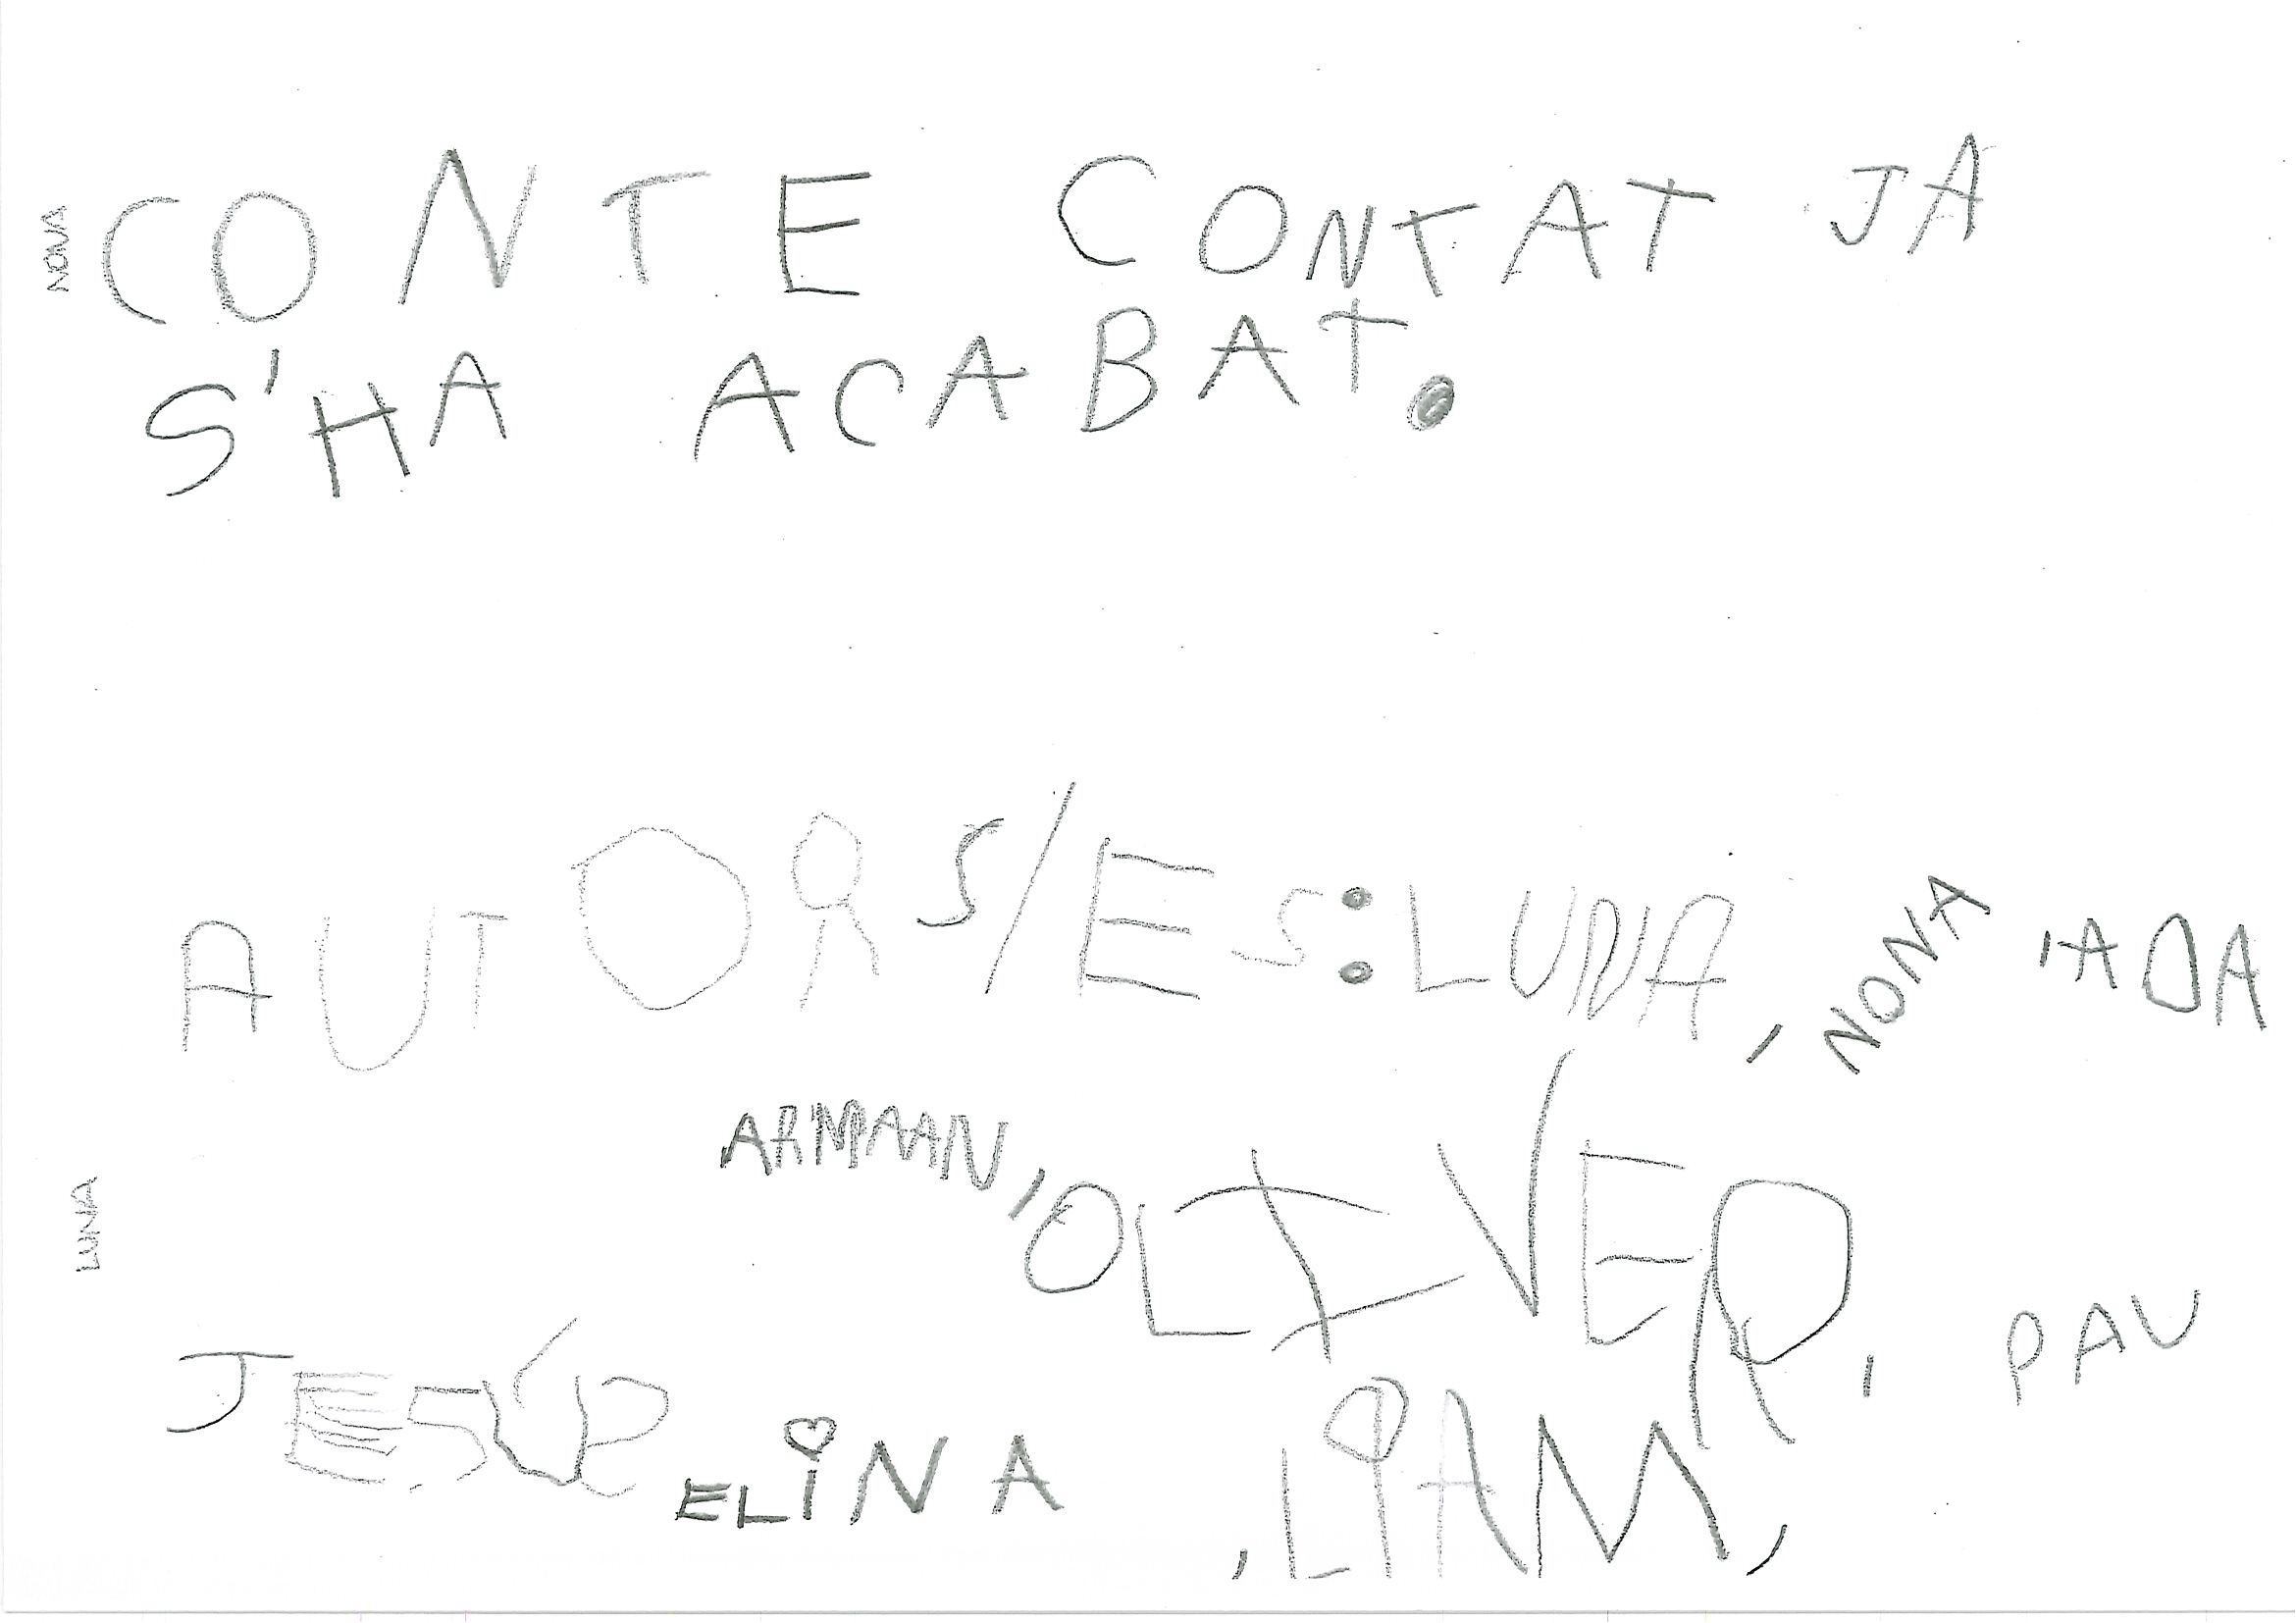 NONA
CONTE CONTAT JA
S'HA ACABAT.
AUTORS/ES: LUNA, NONA, ADA
ARMAAN, OLIVER, PAU
LUNA
ELINA, LIAM,